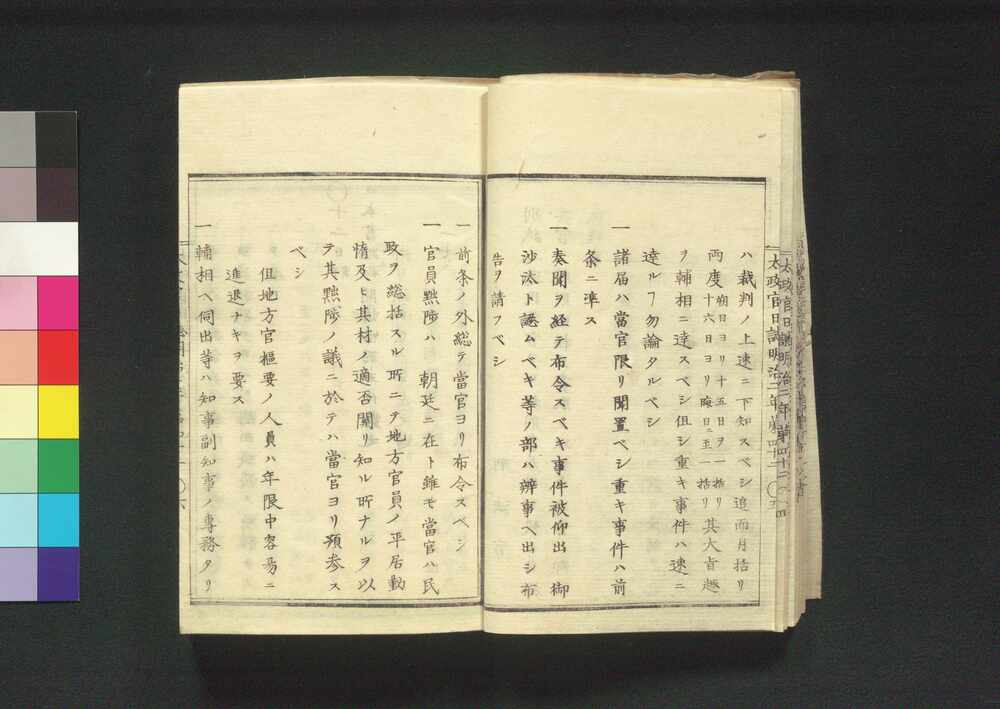 太政官日誌明治二年第四十二 〇五
ハ裁判ノ上速ニ下知スベシ追而月括リ
両度朔日ヨリ十五日ヲ一括リ十六日ヨリ晦日ニ至一括リ其大旨趣
ヲ輔相ニ達スベシ但シ重キ事件ハ速ニ
達ルヿ勿論タルベシ
一 諸届ハ當官限リ聞置ベシ重キ事件ハ前
条ニ準ス
一 奏聞ヲ経テ布令スベキ事件被仰出 御
沙汰ト認ムベキ等ノ部ハ辨事ヘ出シ布
告ヲ請フベシ
一 前条ノ外総テ當官ヨリ布令スベシ
一 官員黜陟ハ 朝廷ニ在ト雖モ當官ハ民
政ヲ総括スル所ニテ地方官員ノ平居動
情及ヒ其材ノ適否関リ知ル所ナルヲ以
テ其黜陟ノ議ニ於テハ當官ヨリ預参ス
ベシ
但地方官樞要ノ人員ハ年限中容易ニ
進退ナキヲ要ス
一 輔相ヘ伺出等ハ知事副知事ノ専務タリ